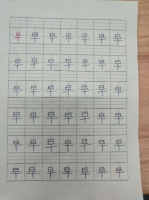 早早早早早早早
早早早早早早早
早早早早早早早
早早早早早早早
早早早早早早早
早早早早早早早